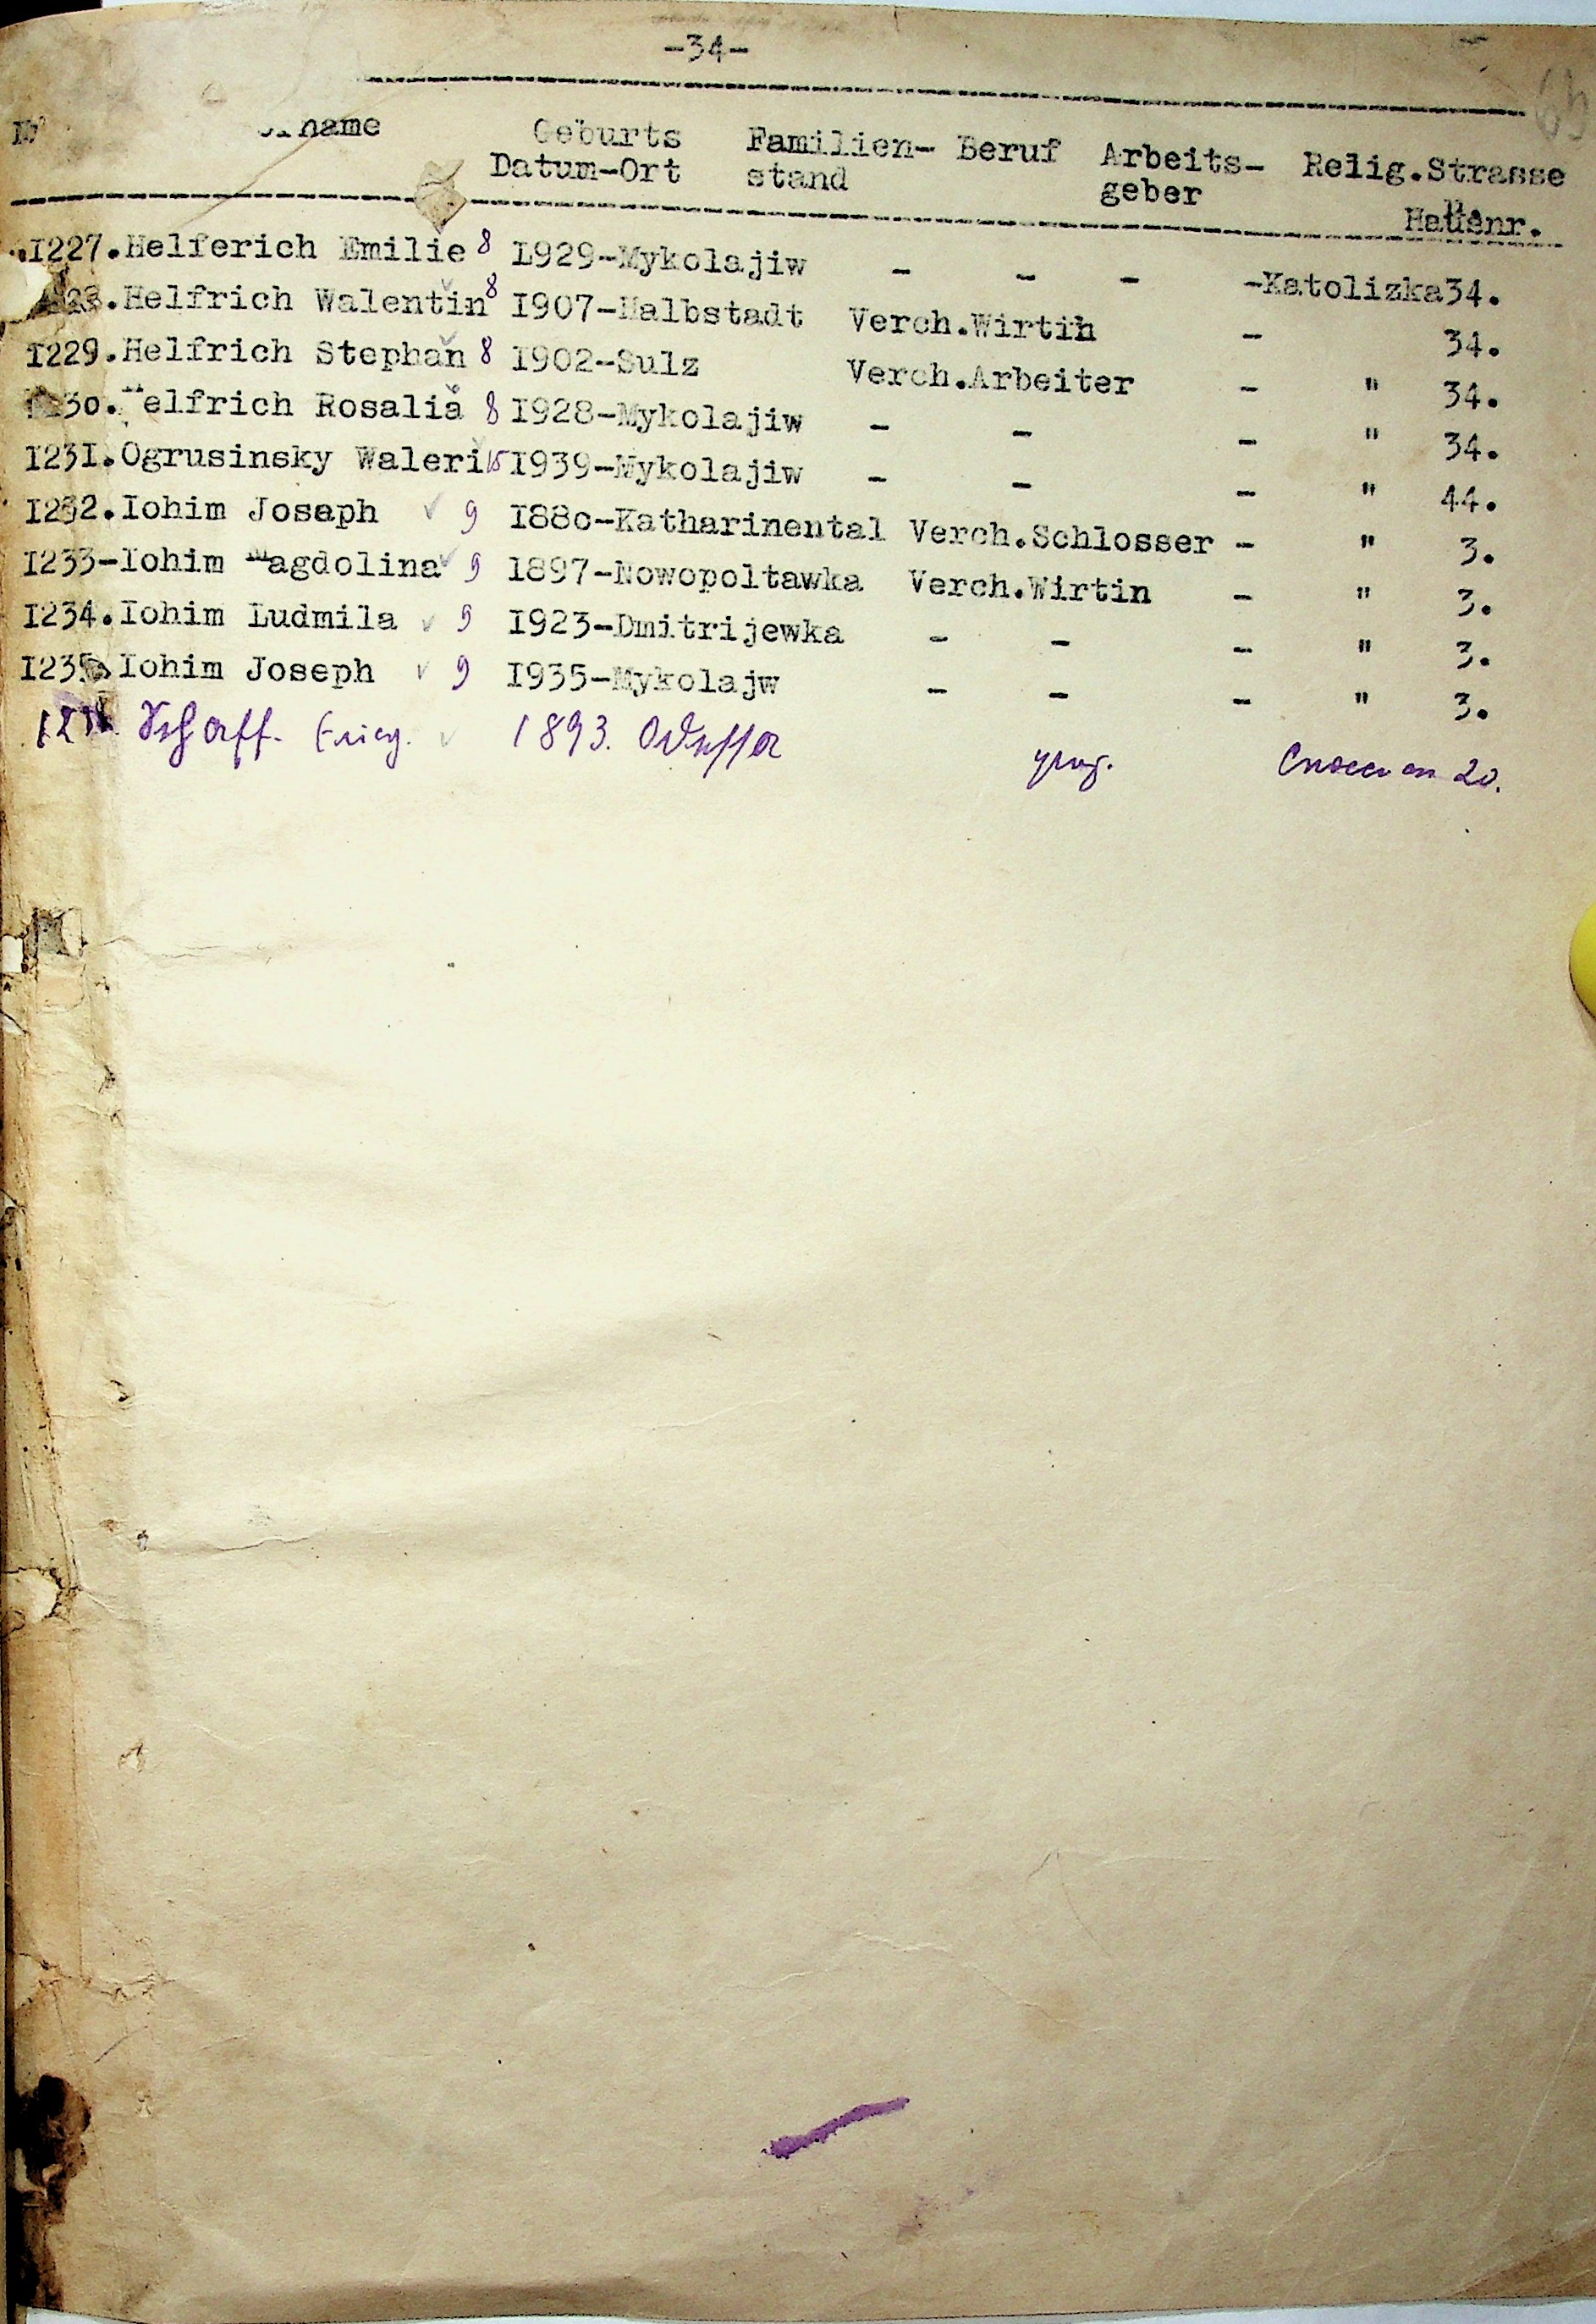 -34-
69
№ name Geburts Familien- Beruf Arbeits- Relig.Strasse
Datum-Ort stand geber u. Hausnr.
I227.Helferich Emilie 8 I929-Mykolajiw - - - -Katolizka34.
Helfrich Walentin 8 I907-Halbstadt Verch.Wirtin - 34.
I229.Helfrich Stephan 8 I902-Sulz Verch.Arbeiter - " 34.
30. Helfrich Rosalia 8 I928-Mykolajiw - - - " 34.
I23I.Ogrusinsky Waleri 15 I939-Mykolajiw - - - " 44.
I232.Iohim Joseph 9 I88o-Katharinental Verch.Schlosser - " 3.
I233-Iohim Magdolina 9 1897-Nowopoltawka Verch.Wirtin - " 3.
I234.Iohim Ludmila 9 I923-Dmitrijewka - - - " 3.
I235.Iohim Joseph 9 I935-Mykolajw - - - " 3.
1893. Odessa 20.